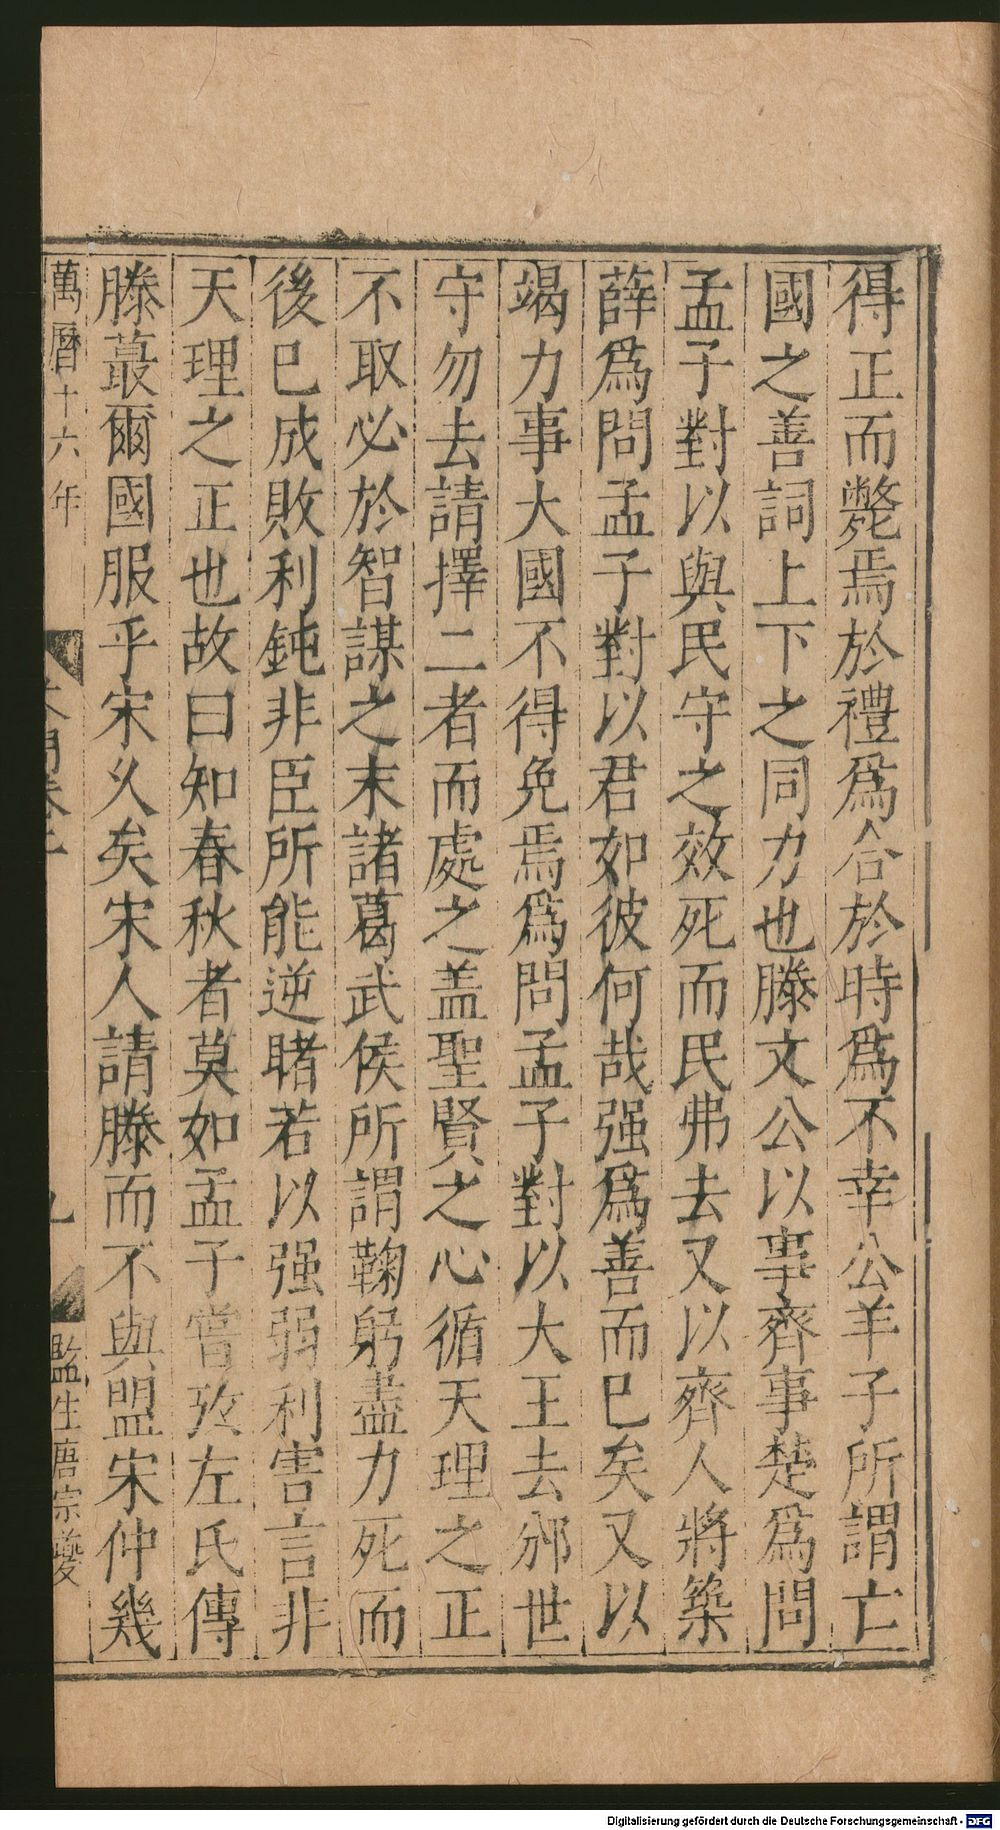 得正而斃焉於禮爲合於時爲不幸公羊子所謂亡
國之善詞上下之同力也滕文公以事齊事楚爲問
孟子對以與民守之效死而民弗去又以齊人將築
薛爲問孟子對以君如彼何哉强爲善而已矣又以
竭力事大國不得免焉爲問孟子對以大王去邠世
守勿去請擇二者而處之盖聖賢之心循天理之正
不取必於智謀之末諸葛武侯所謂鞠躬盡力死而
後已成敗利鈍非臣所能逆睹若以强弱利害言非
天理之正也故曰知春秋者莫如孟子嘗攷左氏傳
滕蕞爾國服乎宋久矣宋人請滕而不與盟宋仲幾
萬曆十六年
九
監生唐宗夔
Digitalisierung gefördert durch die Deutsche Forschungsgemeinschaft - DFG